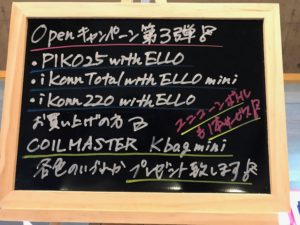 Openキャンペーン第3弾
・PIKO25 with ELLO
・iKonn Total with ELLO mini
・iKonn 220 with ELLO
お買い上げの方
ユニコーンボトル
も1本サービス
COILMASTER Kbag mini
各色のいずれか プレゼント致します